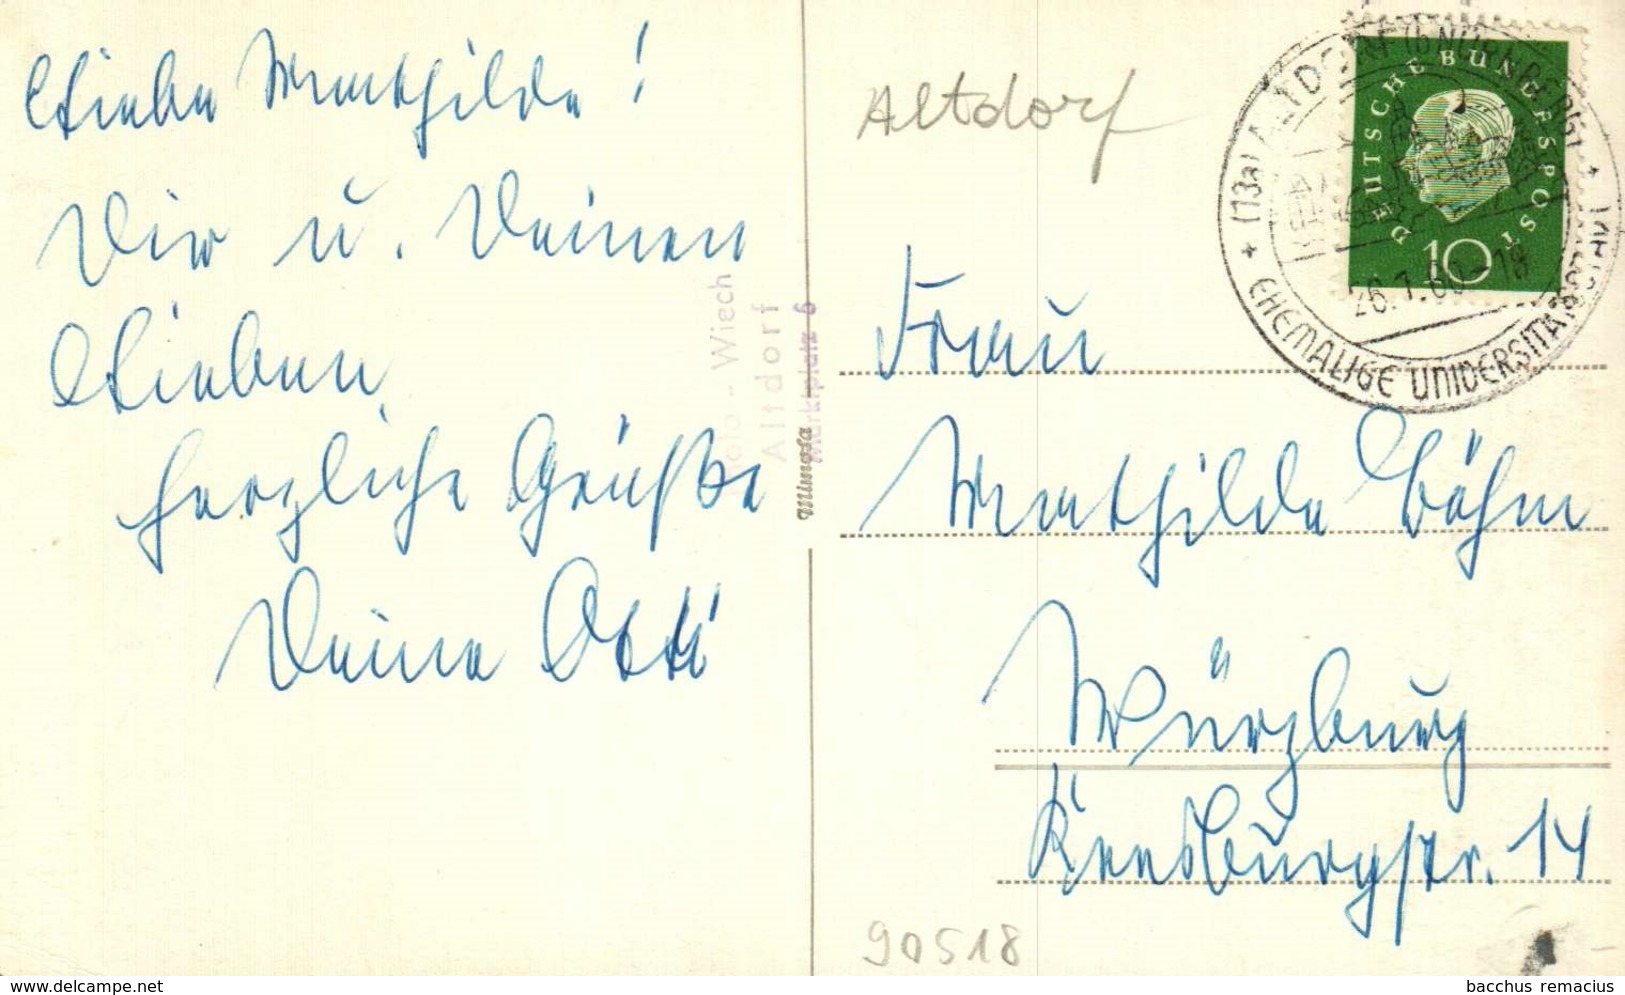 Liebe Mathilde!
Dir u. Deinen
Lieben
herzliche Grüße
Deine Otti
Foto-Wiech
Altdorf
Marktplatz 6
Mimosa
Altdorf
DEUTSCHE BUNDESPOST
10
(13a) ALTDORF (b NÜRNBERG)
26.7.60-18
EHEMALIGE UNIVERSITÄTSSTADT
Frau
Mathilde Böhm
Würzburg
14
90518
delcampe.net
bacchus remacius